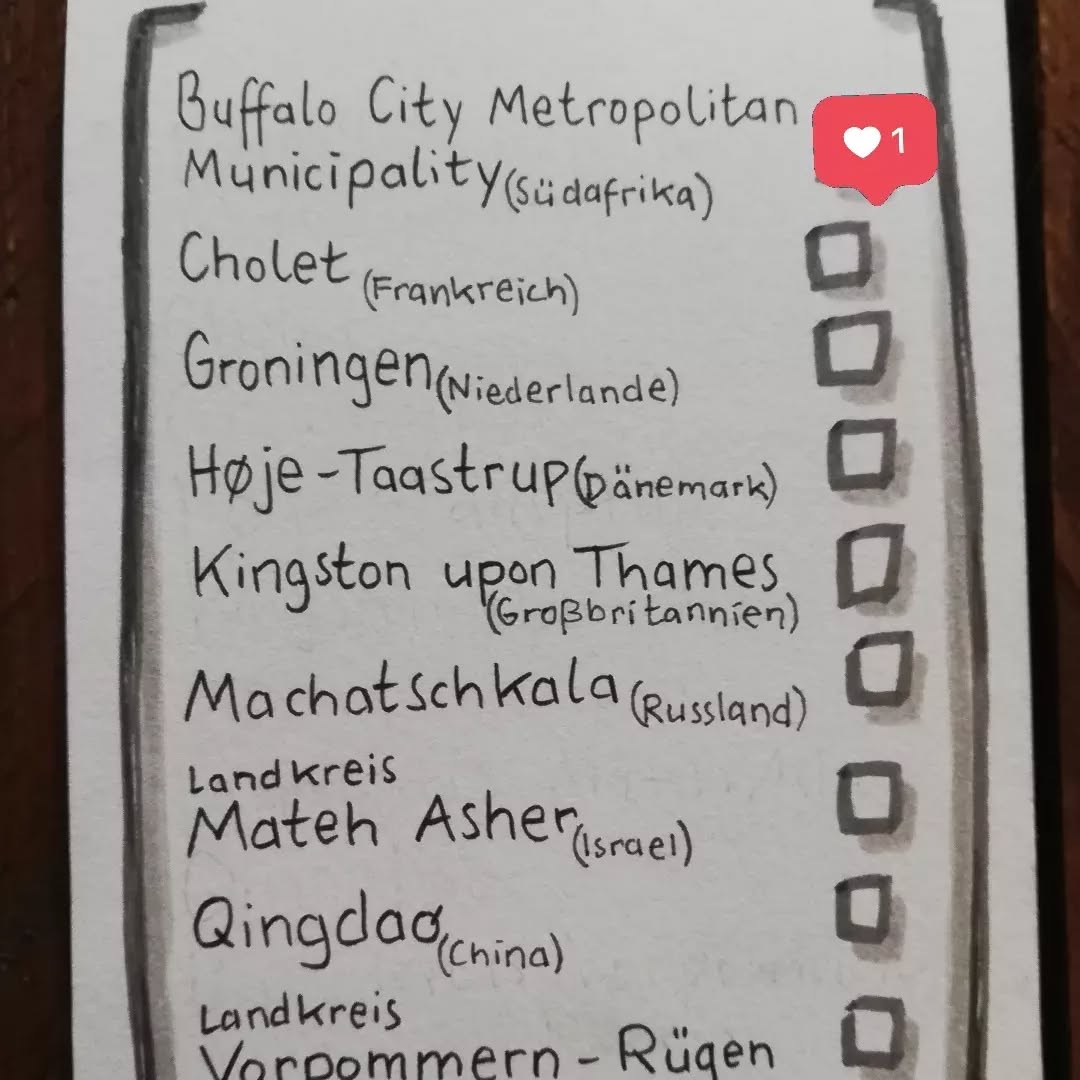 Buffalo City Metropolitan
1
Municipality (Südafrika)
Cholet (Frankreich)
Groningen (Niederlande)
Høje-Taastrup (Dänemark)
Kingston upon Thames
(Großbritannien)
Machatschkala (Russland)
Landkreis
Mateh Asher (Israel)
Qingdao (China)
Landkreis
Vorpommern-Rügen